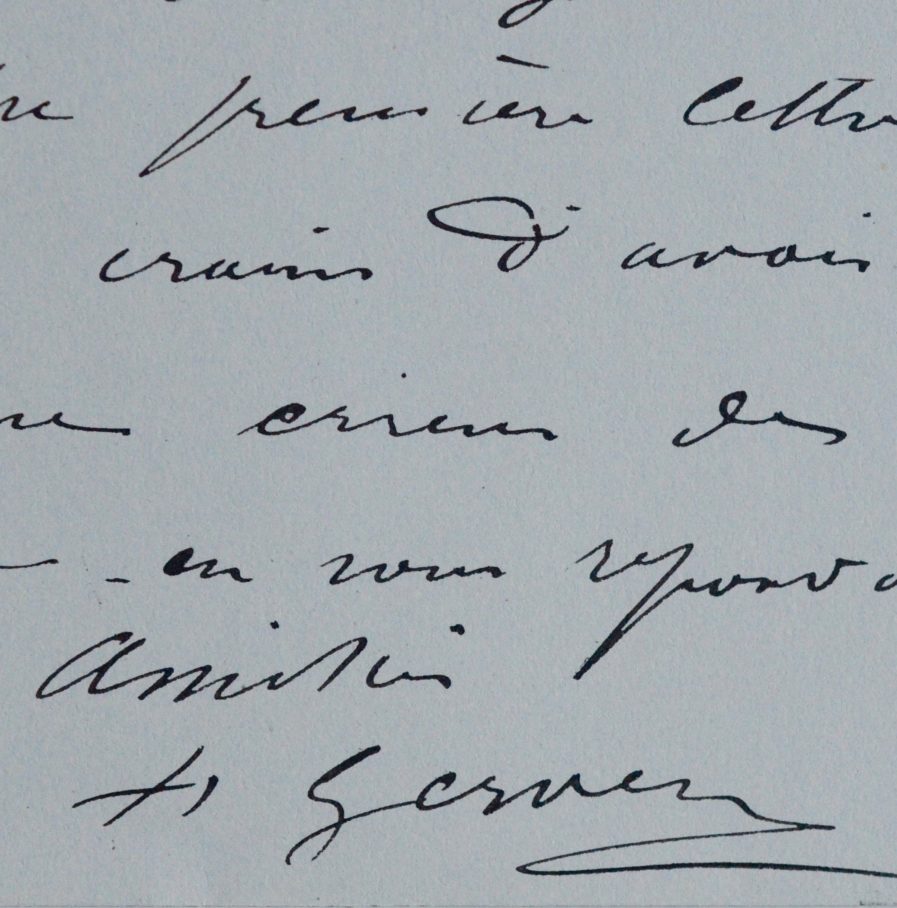 première lettre
crains d'avoir
une erreur de
- en vous répond
Amitiés
H Gervex